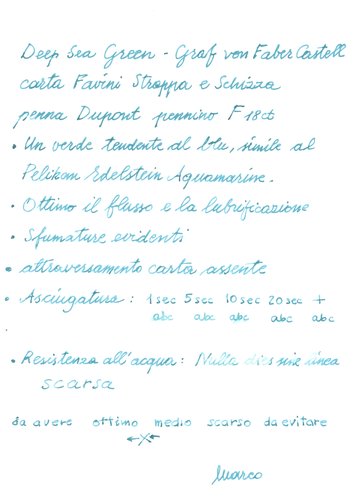 Deep Sea Green - Graf von Faber Castell
carta Favini Strappa e Schizza
penna Dupont pennino F 18ct
• Un verde tendente al blu, simile al
Pelikan Edelstein Aquamarine.
• Ottimo il flusso e la lubrificazione
• Sfumature evidenti
• attraversamento carta assente
• Asciugatura : 1 sec 5 sec 10 sec 20 sec +
abc abc abc abc abc
• Resistenza all'acqua : Nulla dies sine linea
scarsa
da avere ottimo medio scarso da evitare
←X←
Marco